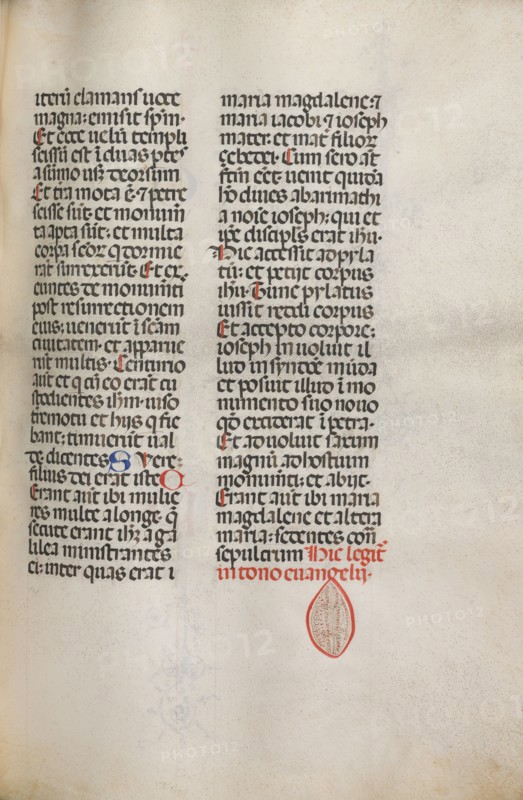 iterū clamans uoce
magna: emisit sp̄m·
Et ecce uelū templi
scissū est ī duas p̄tes
a sūmo usq deorsum
Et t̄ra mota ē· ⁊ petre
scisse sūt· et monum̄
ta apta sūt: et multa
corpa sc̄or q dormie
rāt surrexerūt· Et ex
euntes de monum̄ti
post resurrectionem
eius: uenerūt ī sc̄am
ciuitatem· et apparue
rūt multis· Centurio
aūt et q cū eo erāt cu
stodientes ih̄m· uiso
t̄remotu et hijs q fie
bant: timuerūt ual
de dicentes S Vere:
filius dei erat iste O
Erant aūt ibi mulie
res multe a longe· q̄
secute erant ih̄ȝ a ga
lilea ministrantes
ei: inter quas erat ī
maria magdalene: ⁊
maria iacobi· ⁊ ioseph
mater· et mat̄ filioꝝ
çebedei· Cum sero aūt
f̄tm eēt· uenit quidā
hō diues ab arimathi
a noīe ioseph: qui et
ip̄e discipls erat ih̄u·
Hic accessit ad pyla
tū: et petijt corpus
ih̄u· Tunc pylatus
iussit reddi corpus
Et accepto corpore:
ioseph inuoluit il
lud in syndōe mūda
et posuit illud ī mo
numento suo nouo
qd̄ exciderat ī petra·
Et aduoluit saxum
magnū ad hostium
monum̄ti: et abijt·
Erant aūt ibi maria
magdalene et altera
maria: sedentes con̄
sepulcrum Hic legit̄
in tono euangelij·